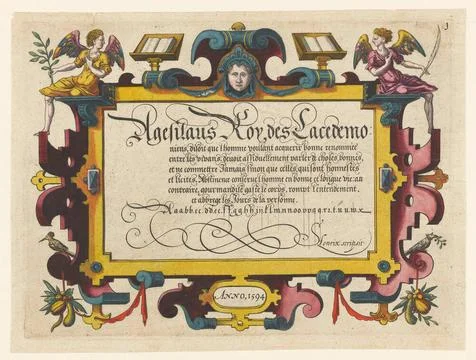 3
Agesilaus Roy, des Lacedemo
niens, disoit que l'homme voulant acquerir bonne renommée
entre les vivans, devoit assiduellement parler de choses bonnes,
et ne commettre Jamais sinon que celles qui sont honnestes
et licites, Abstinence contenue l'homme en bonne et longue vie: au
contraire, gourmandise gaste le corps, rompt l'entendement,
et abrege les Jours de la personne.
A.a.a.b.b.c.c.d.d.e.e.f.f.g.g.h.h.i.n.k.l.m.m.n.o.o.v.o.q.q.r.r.s.t.u.u.w.x
Henrix scripsit
ANNO, 1594